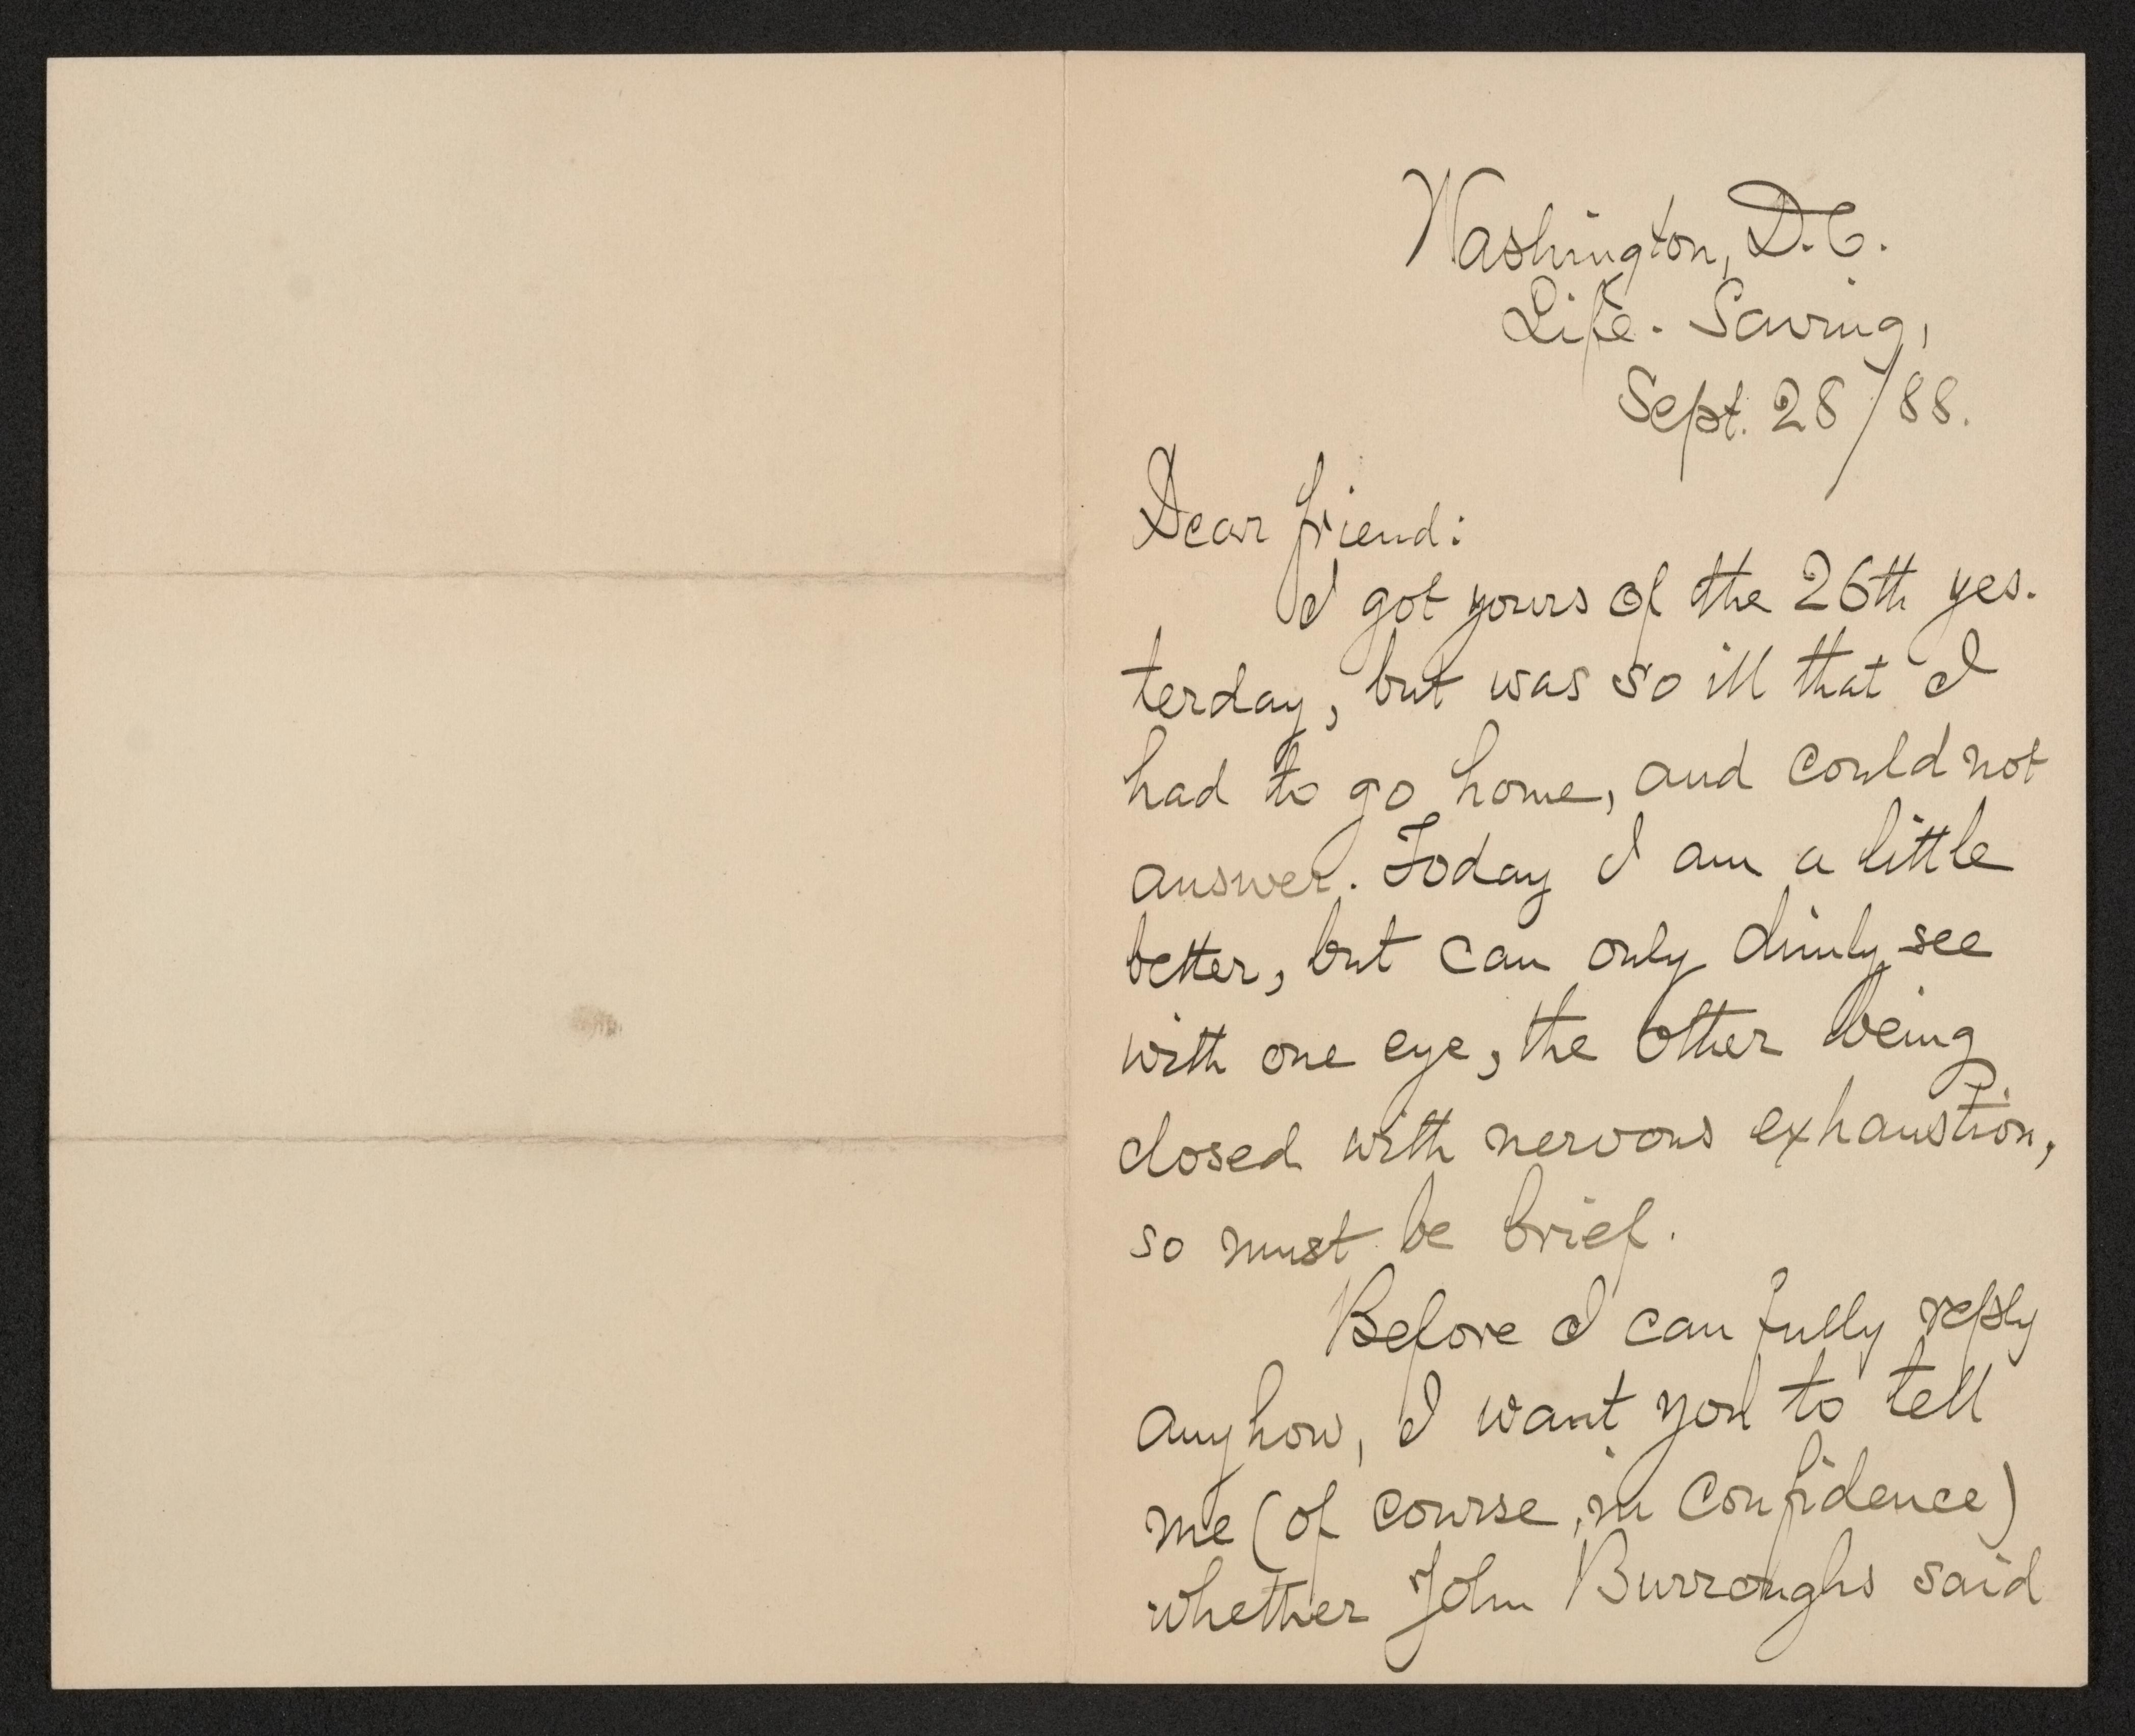 Washington, D.C.
Life-Saving,
Sept. 28/88.
Dear friend:
I got yours of the 26th yes-
terday, but was so ill that I
had to go home, and could not
answer. Today I am a little
better, but can only dimly see
with one eye, the other being
closed with nervous exhaustion,
so must be brief.
Before I can fully reply
anyhow, I want you to tell
me (of course, in confidence)
whether John Burroughs said